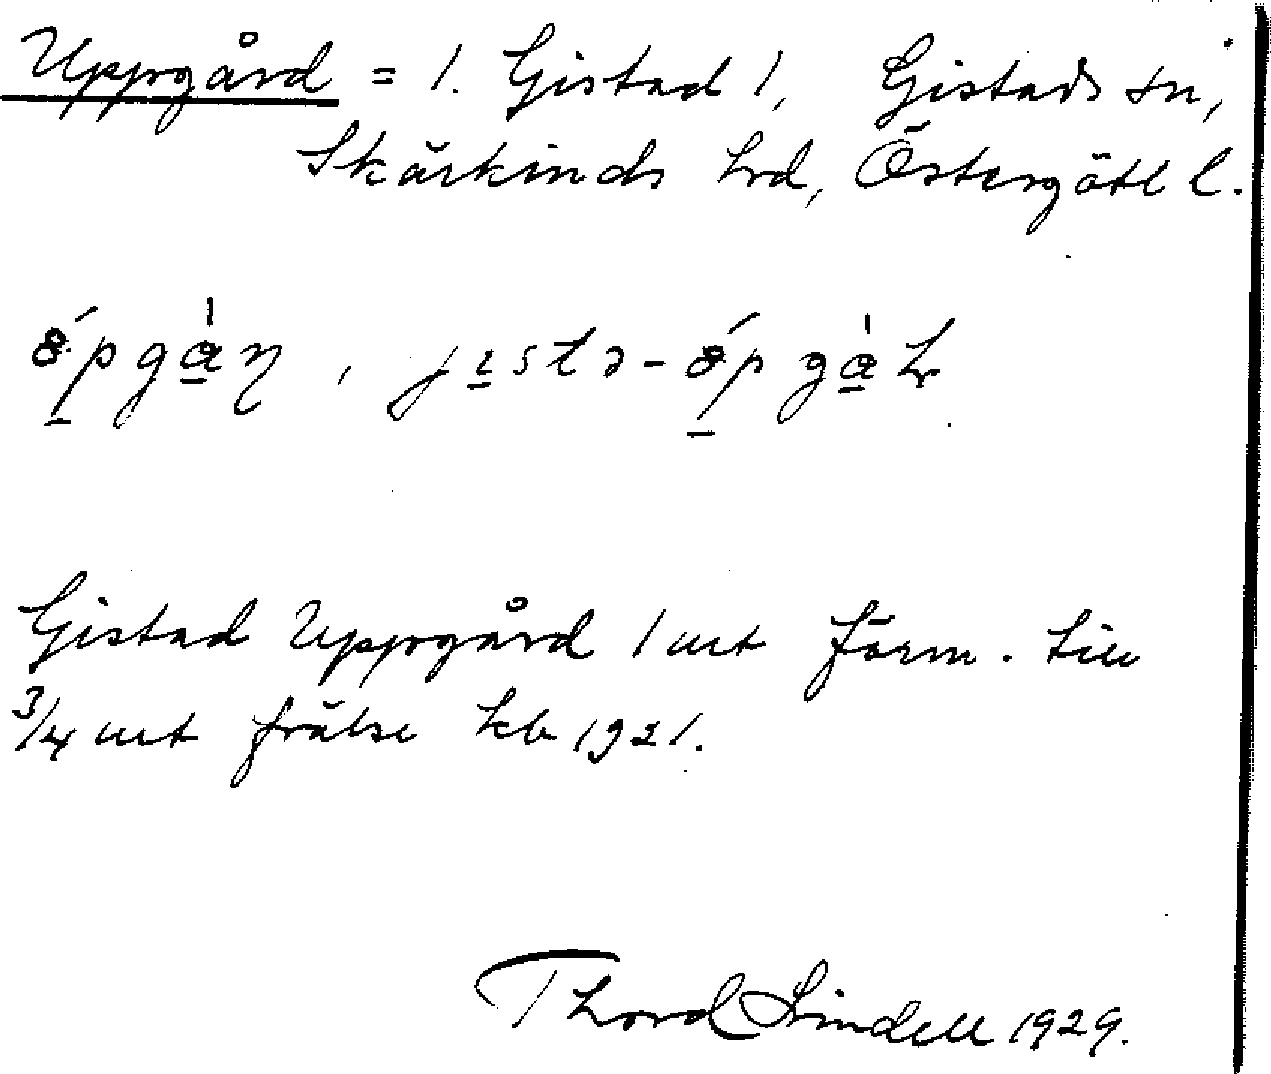 Uppgård = 1. Gistad 1, Gistads sn,
Skärkinds hrd, Östergötl l.
Gistad Uppgård 1 mt förm. till
3/4 mt frälse kb 1921.
Thord Lindell 1929.